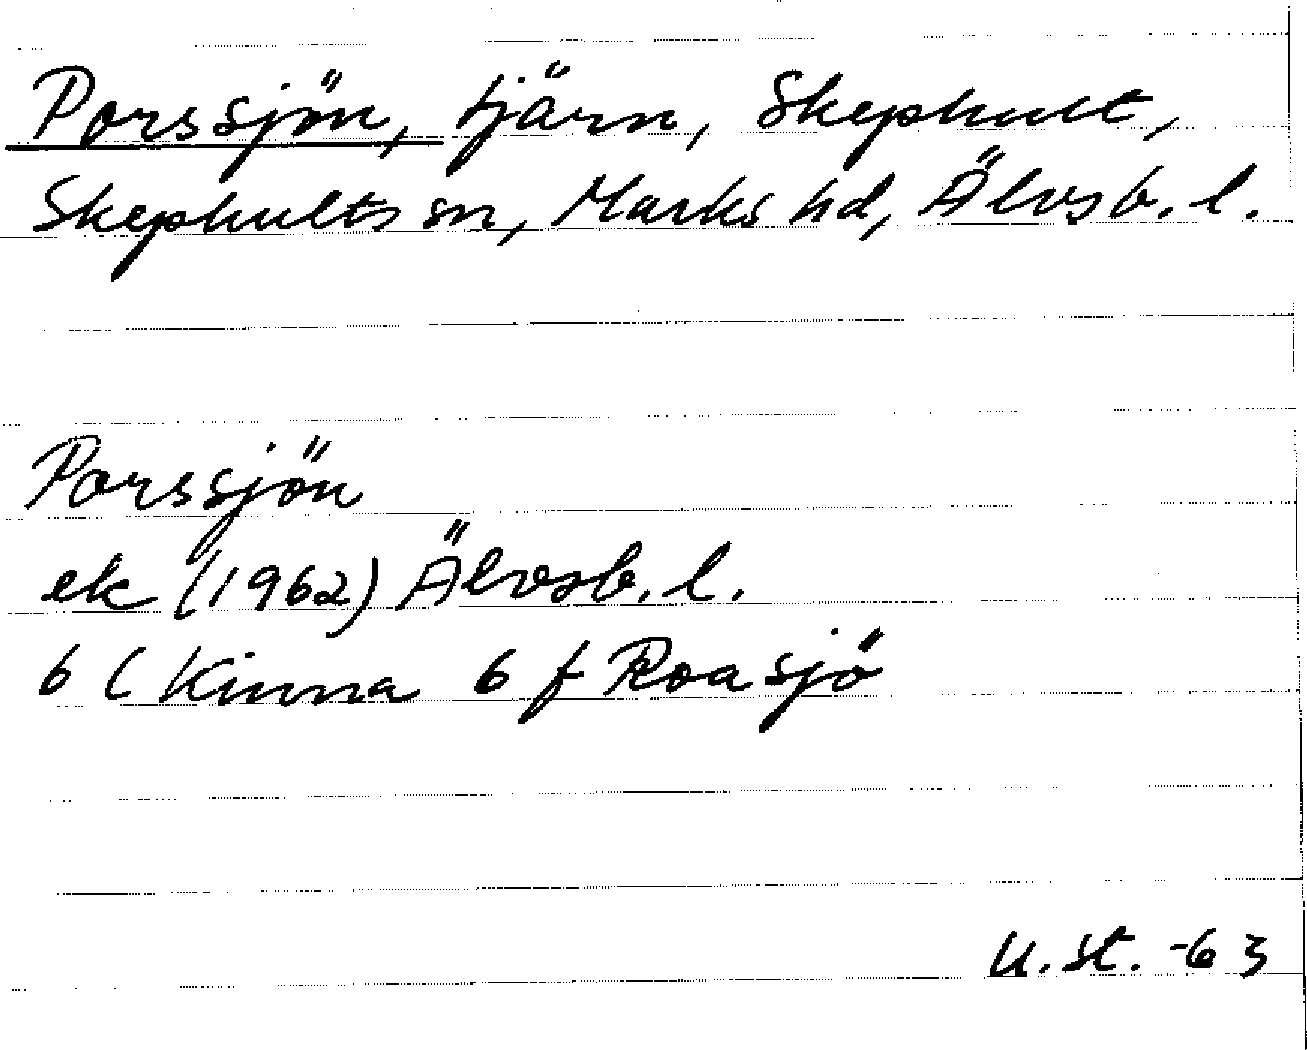 Porssjön, tjärn, Skephult,
Skephults sn, Marks hd, Älvsb. l.
Porssjön
ek (1962) Älvsb. l.
6 C Kinna 6 f Roasjö
U. St. -63